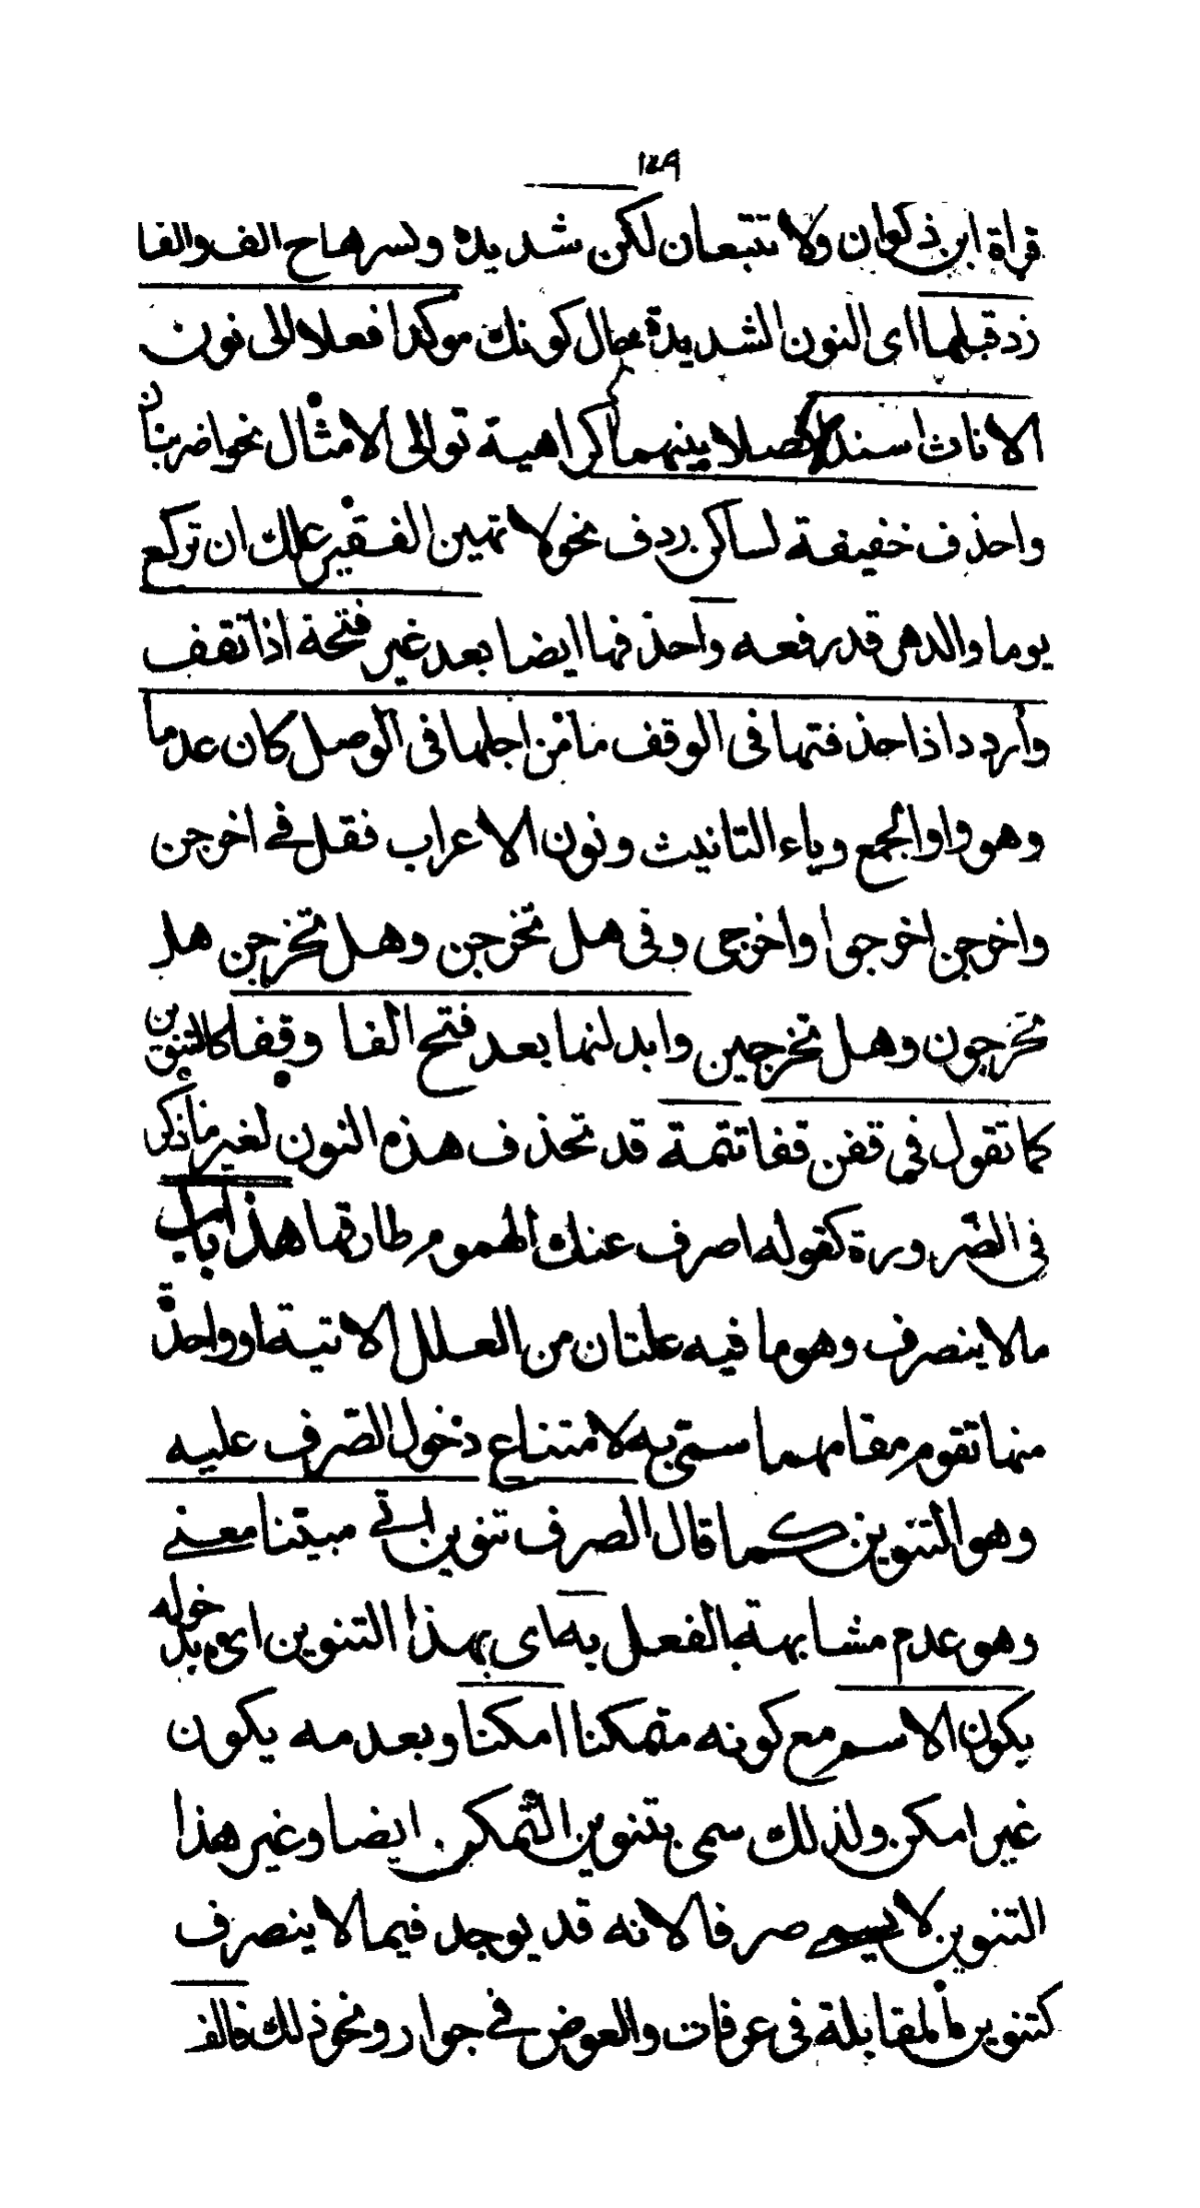 ١٤٩
قراة ابن ذكوان ولا تتبعان لكن شديدة وكسرها ح الف والفا
زد قبلها اى النون الشديدة حال كونك موكدا فعلا الى نون
الاناث اسندا فصلا بينهما كراهية توالى الامثال نحو اضربنان
واحذف خفيفة لساكن ردف نحو لا تهين الفقير علك ان تركع
يوما والدهر قد رفعه واحذفها ايضا بعد غير فتحة اذا تقف
واردد اذا حذفتها فى الوقف ما من اجلها فى الوصل كان عدما
وهو واو الجمع وياء التانيث ونون الاعراب فقل فے اخرجن
واخرجن اخرجوا واخرجى وفى هل تخرجن وهل تخرجن هل
تخرجون وهل تخرجين وابدلنها بعد فتح الفا وقفا كالتنوين
كما تقول فى قفن قفا تتمة قد تحذف هذه النون لغير ما ذكر
فى الضرورة كقوله اصرف عنك الهموم طارقها هذا باب
ما لا ينصرف وهو ما فيه علتان من العلل الاتية او واحدة
منها تقوم مقامهما سمى به لامتناع دخول الصرف عليه
وهو التنوين كما قال الصرف تنوين اتى مبينا معنى
وهو عدم مشابهة الفعل به اى بهذا التنوين اى بدخوله
يكون الاسم مع كونه متمكنا امكنا وبعدمه يكون
غير امكن ولذلك سمى بتنوين التمكن ايضا وغير هذا
التنوين لا يسمى صرفا لانه قد يوجد فيما لا ينصرف
كتنوين المقابلة فى عرفات والعوض فے جوار ونحو ذلك فالف